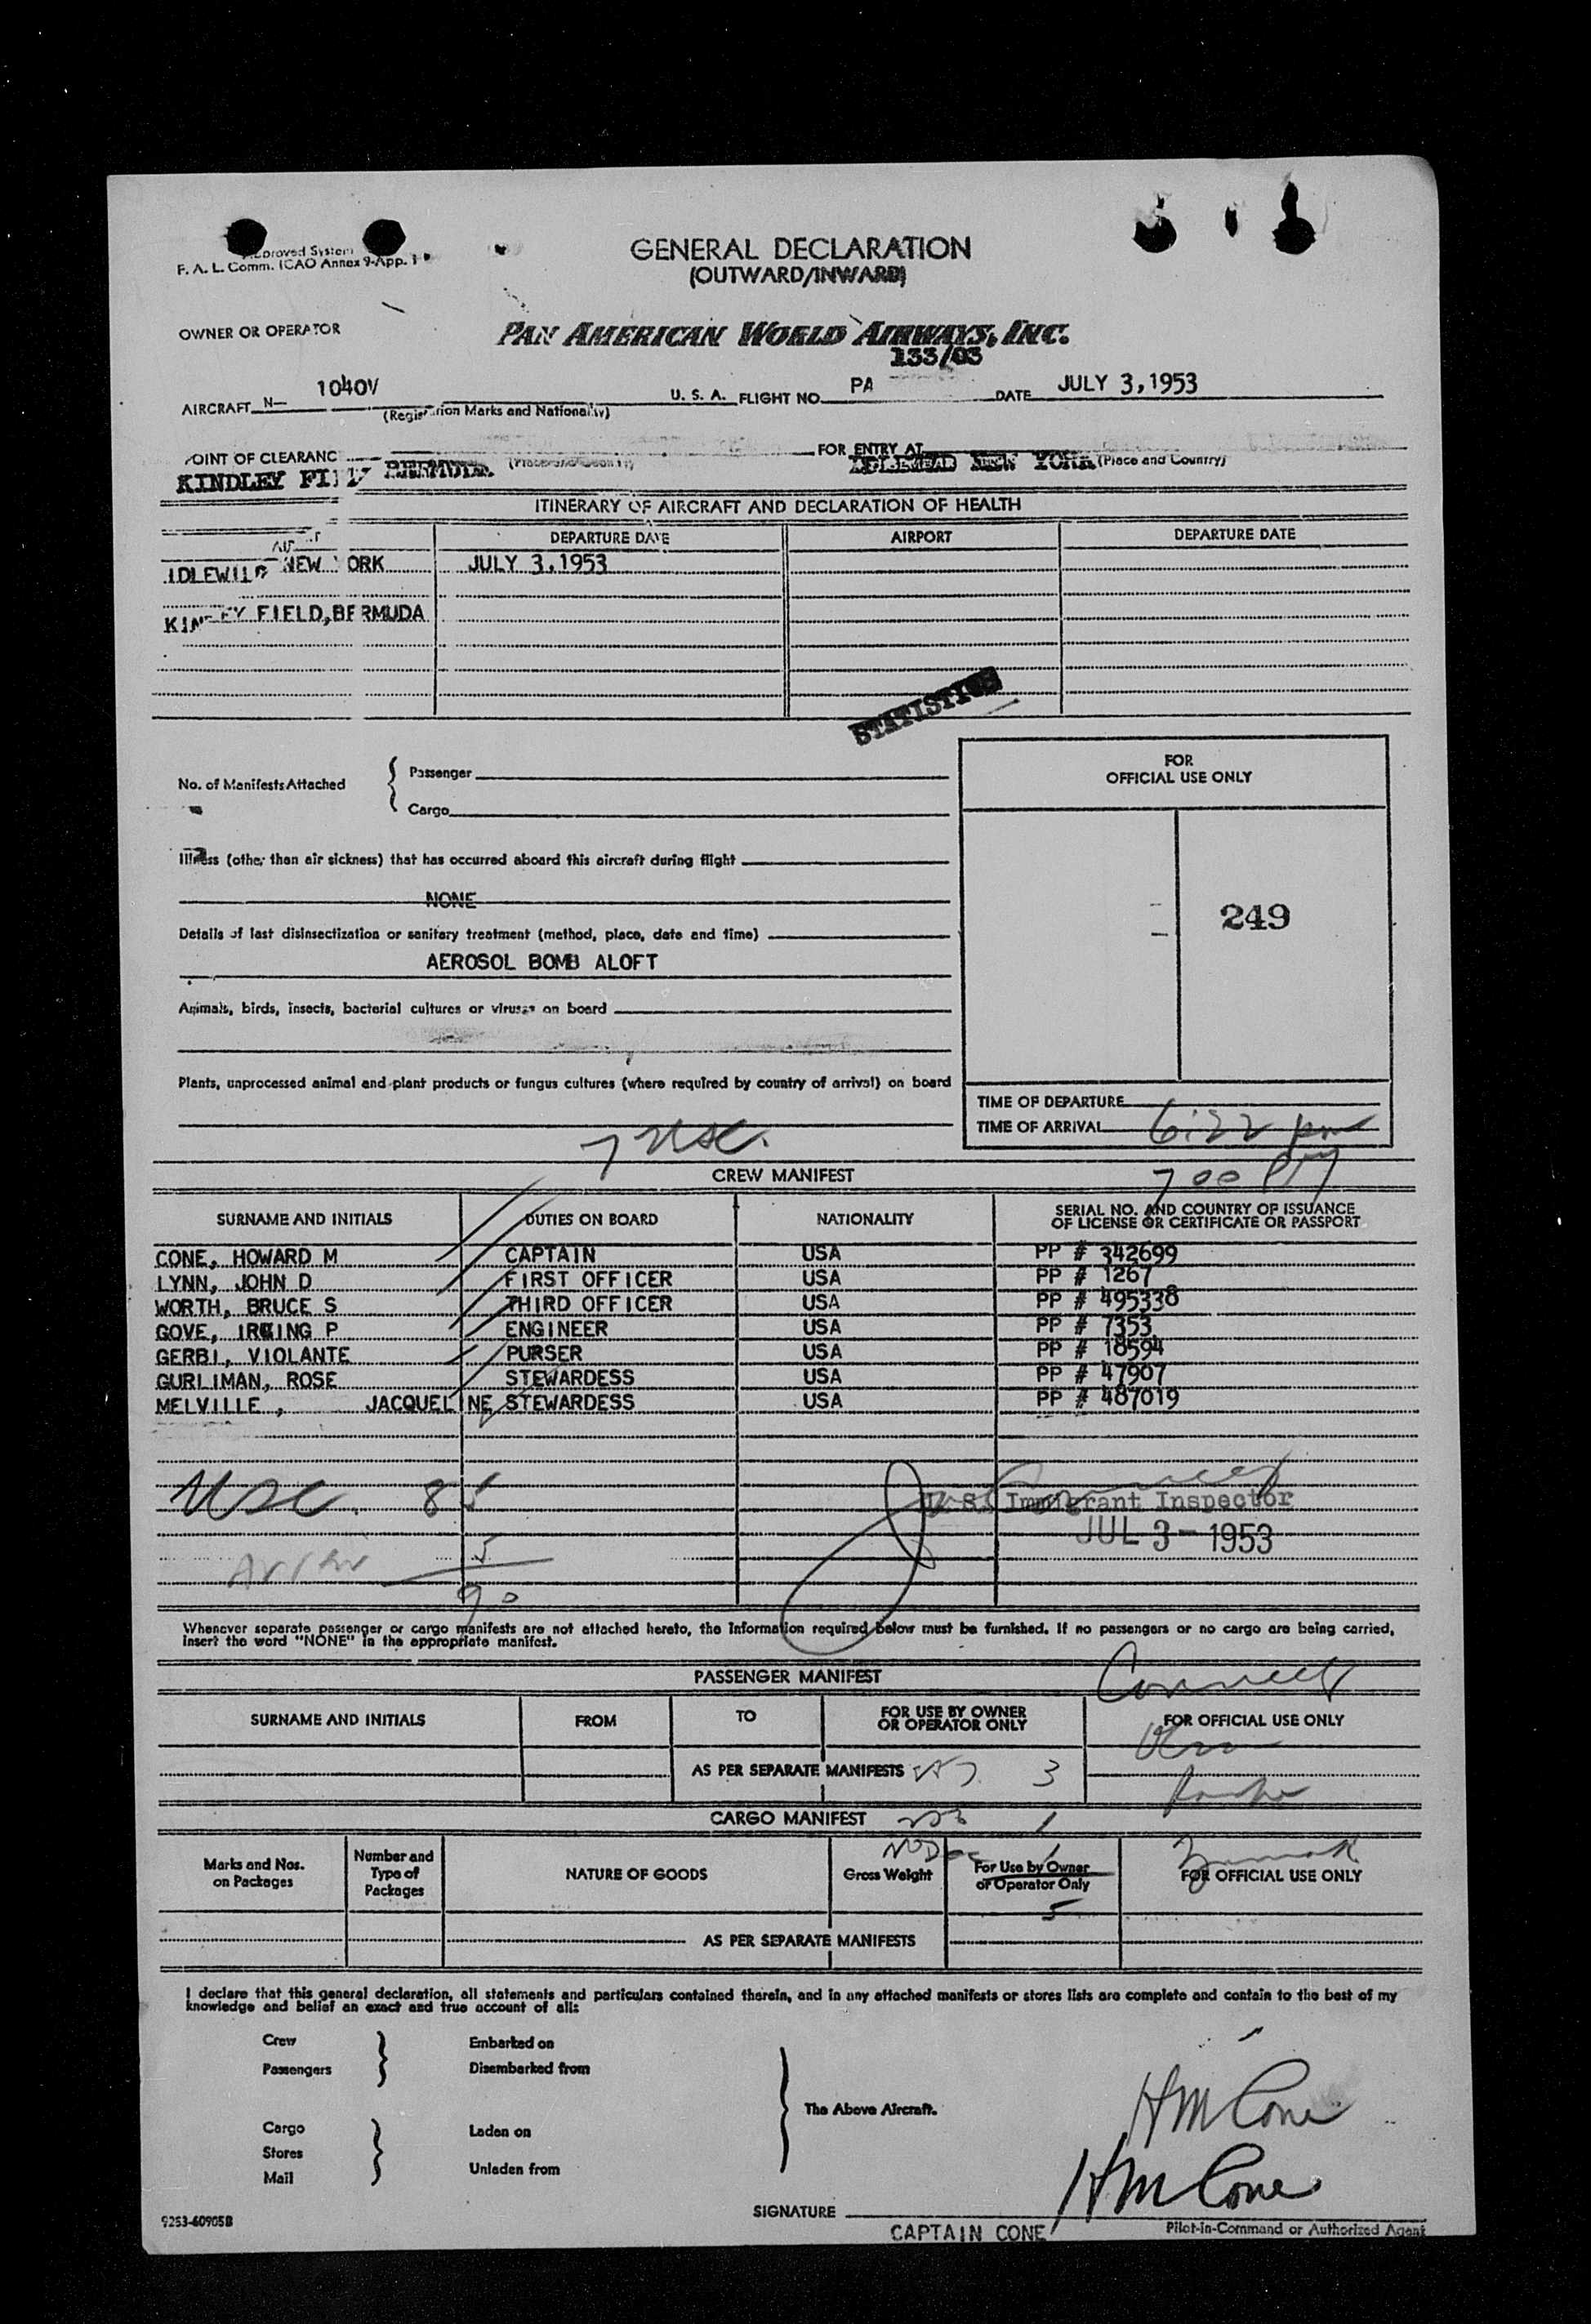 Approved System
F. A. L. Comm. ICAO Annex 9-App. 1
GENERAL DECLARATION
(OUTWARD/INWARD)
OWNER OR OPERATOR
PAN AMERICAN WORLD AIRWAYS, INC.
133/03
AIRCRAFT N— 1040V U. S. A. FLIGHT NO. PA DATE JULY 3,1953
(Registration Marks and Nationality)
POINT OF CLEARANC FOR ENTRY AT
KINDLEY FI BERMUDA (Place and Country) NEW YORK (Place and Country)
ITINERARY OF AIRCRAFT AND DECLARATION OF HEALTH
DEPARTURE DATE AIRPORT DEPARTURE DATE
IDLEWILD NEW YORK JULY 3,1953
KINDLEY FIELD,BERMUDA
STATISTICS
No. of Manifests Attached { Passenger
Cargo
Illness (other than air sickness) that has occurred aboard this aircraft during flight
NONE
Details of last disinsectization or sanitary treatment (method, place, date and time)
AEROSOL BOMB ALOFT
Animals, birds, insects, bacterial cultures or viruses on board
Plants, unprocessed animal and plant products or fungus cultures (where required by country of arrival) on board
FOR
OFFICIAL USE ONLY
249
TIME OF DEPARTURE
TIME OF ARRIVAL 6:22 pm
7 USC.
CREW MANIFEST 7 00 PM
SURNAME AND INITIALS DUTIES ON BOARD NATIONALITY SERIAL NO. AND COUNTRY OF ISSUANCE
OF LICENSE OR CERTIFICATE OR PASSPORT
CONE, HOWARD M CAPTAIN USA PP # 342699
LYNN, JOHN D FIRST OFFICER USA PP # 1267
WORTH, BRUCE S THIRD OFFICER USA PP # 495338
GOVE, IRVING P ENGINEER USA PP # 7353
GERBI, VIOLANTE PURSER USA PP # 18594
GURLIMAN, ROSE STEWARDESS USA PP # 47907
MELVILLE , JACQUELINE STEWARDESS USA PP # 487019
USC. 85
U. S. Immigrant Inspector
JUL 3 - 1953
5
90
Whenever separate passenger or cargo manifests are not attached hereto, the information required below must be furnished. If no passengers or no cargo are being carried,
insert the word "NONE" in the appropriate manifest.
PASSENGER MANIFEST
SURNAME AND INITIALS FROM TO FOR USE BY OWNER
OR OPERATOR ONLY FOR OFFICIAL USE ONLY
AS PER SEPARATE MANIFESTS 3
CARGO MANIFEST 1
Marks and Nos.
on Packages Number and
Type of
Packages NATURE OF GOODS Gross Weight For Use by Owner
or Operator Only FOR OFFICIAL USE ONLY
5
AS PER SEPARATE MANIFESTS
I declare that this general declaration, all statements and particulars contained therein, and in any attached manifests or stores lists are complete and contain to the best of my
knowledge and belief an exact and true account of all:
Crew Embarked on
Passengers Disembarked from
The Above Aircraft.
Cargo Laden on
Stores
Mail Unladen from
HM Cone
HM Cone
SIGNATURE
CAPTAIN CONE Pilot-in-Command or Authorized Agent
9253-60905B